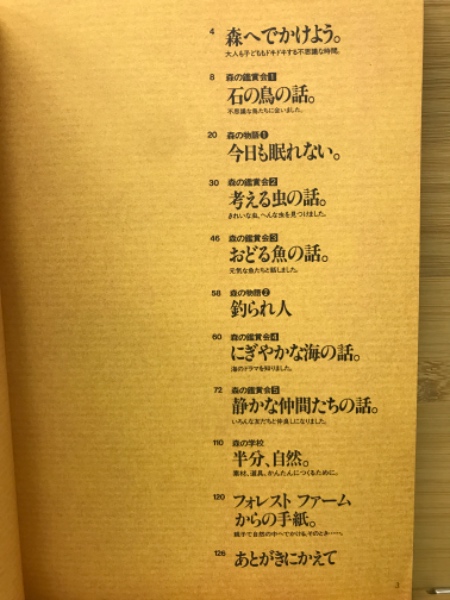 4 森へでかけよう。
大人も子どももドキドキする不思議な時間。
8 森の鑑賞会1
石の鳥の話。
不思議な鳥たちに会いました。
20 森の物語1
今日も眠れない。
30 森の鑑賞会2
考える虫の話。
きれいな虫、へんな虫を見つけました。
46 森の鑑賞会3
おどる魚の話。
元気な魚たちと話しました。
58 森の物語2
釣られ人
60 森の鑑賞会4
にぎやかな海の話。
海のドラマを知りました。
72 森の鑑賞会5
静かな仲間たちの話。
いろんな友だちと仲良しになりました。
110 森の学校
半分、自然。
素材、道具。かんたんにつくるために。
120 フォレスト ファーム
からの手紙。
親子で自然の中へでかける。そのとき……。
126 あとがきにかえて